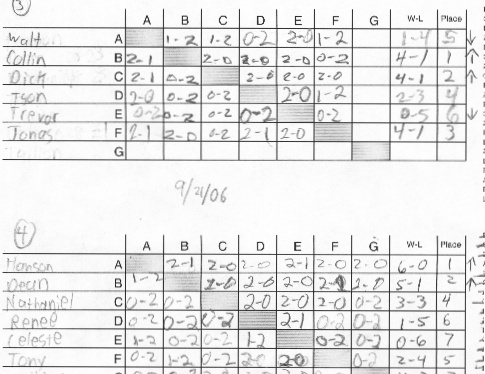 3
A B C D E F G W-L Place
Walt A 1-2 1-2 0-2 2-0 1-2 1-4 5 ↓
Collin B 2-1 2-0 2-0 2-0 0-2 4-1 1 ↑
Dick C 2-1 0-2 2-0 2-0 2-0 4-1 2 ↑
D 2-0 0-2 0-2 2-0 1-2 2-3 4
Trevor E 0-2 0-2 0-2 0-2 0-2 0-5 6 ↓
Jonas F 2-1 2-0 0-2 2-1 2-0 4-1 3
G
9/21/06
4
A B C D E F G W-L Place
Hanson A 2-1 2-0 2-0 2-1 2-0 2-0 6-0 1 ↑
Dean B 1-2 2-0 2-0 2-0 5-1 2 ↑
Nathaniel C 0-2 0-2 2-0 2-0 2-0 0-2 3-3 4
Renee D 0-2 0-2 0-2 2-1 0-2 0-2 1-5 6
Celeste E 1-2 0-2 0-2 1-2 0-2 0-2 0-6 7
Tony F 0-2 1-2 0-2 2-0 2-0 0-2 2-4 5